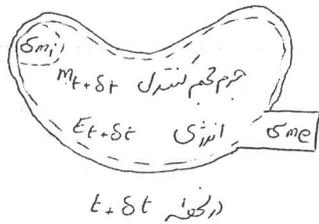 δmi
جرم حجم کنترل mt+δt
انرژی Et+δt
δme
در لحظه t+δt